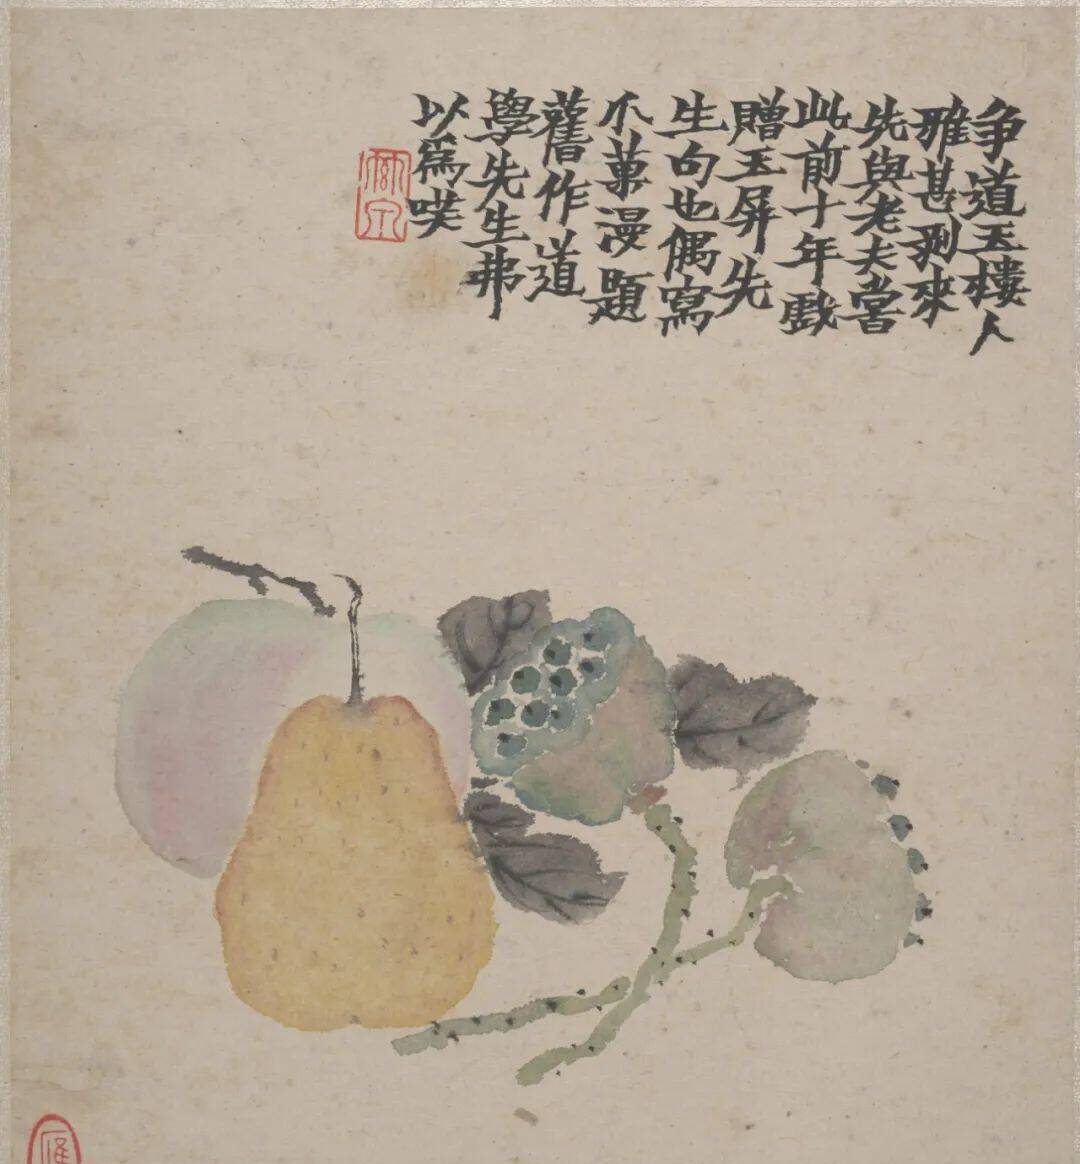 争道玉樓人
雅甚剥來
先與老夫嘗
此前十年戲
贈玉屏先
生句也偶寫
菓漫題
舊作道
學先生弗
以爲